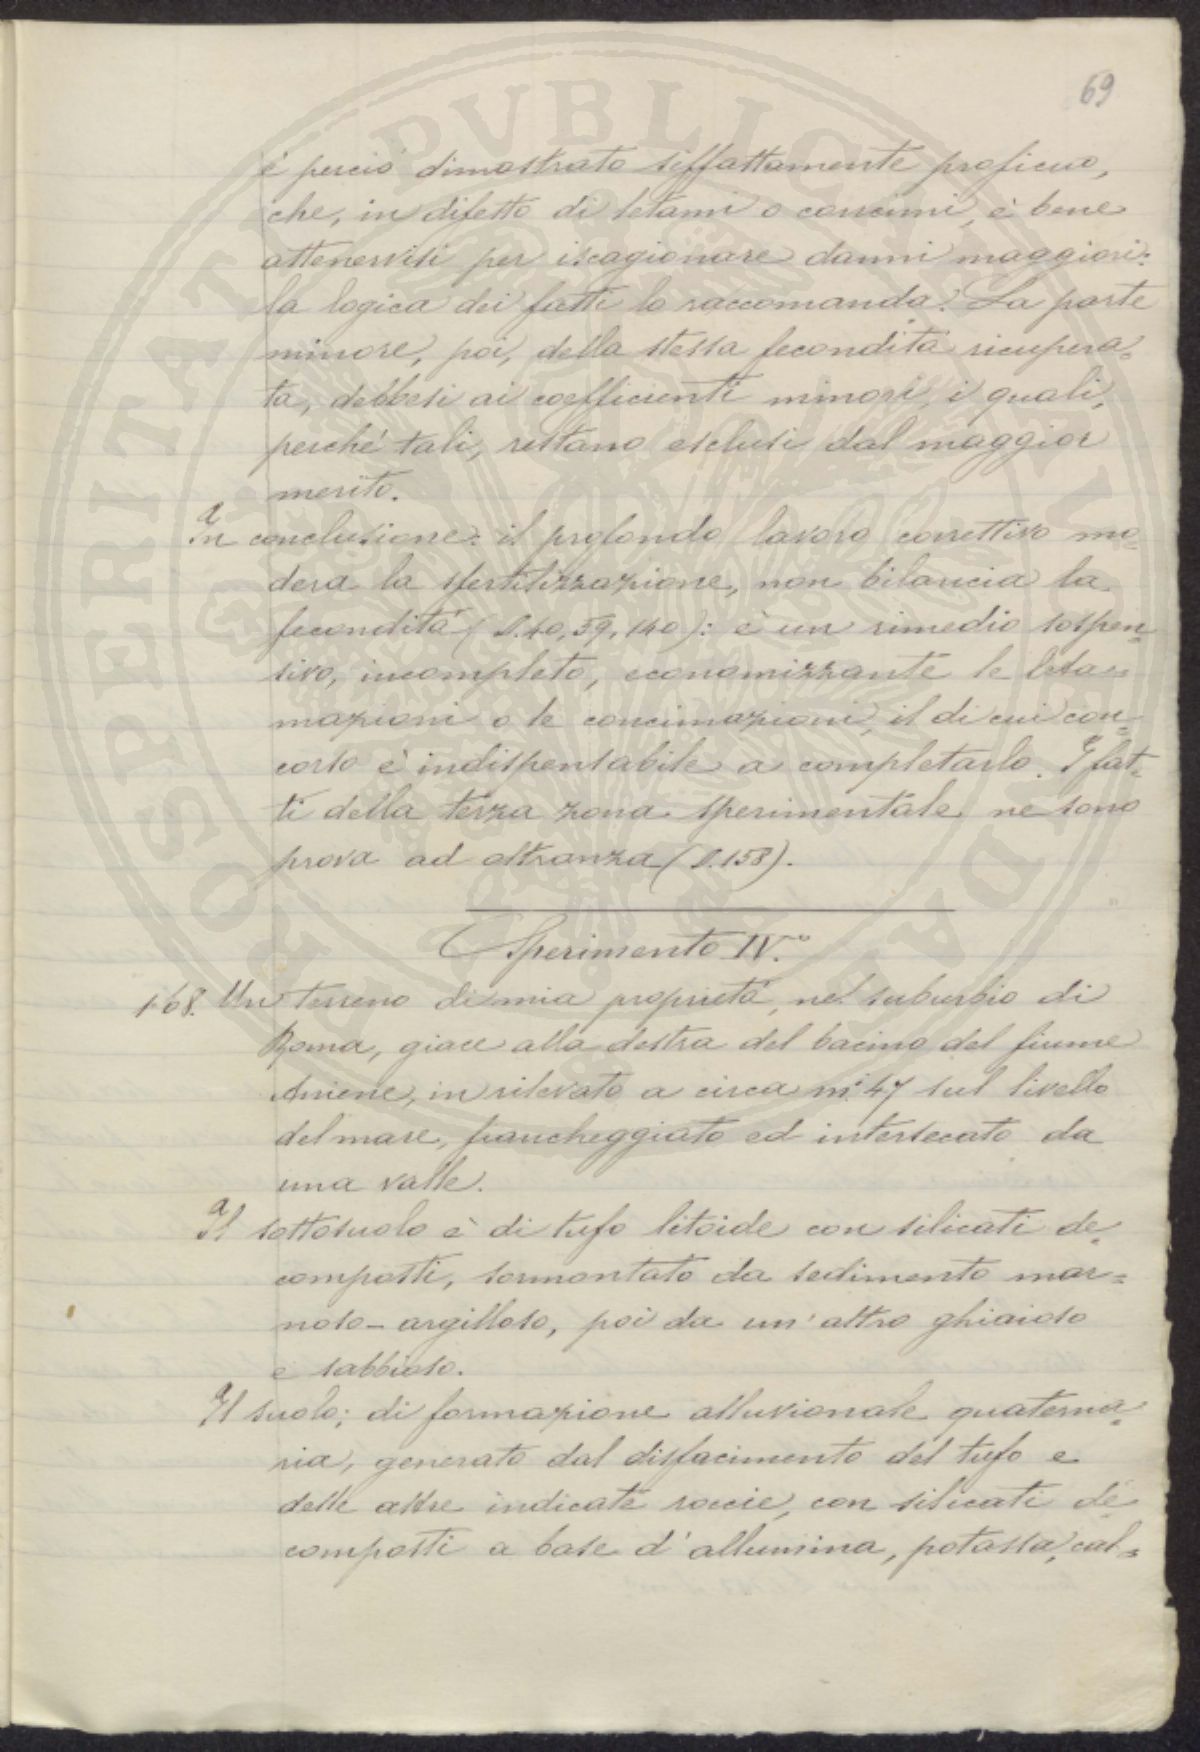 69
è perciò dimostrato siffattamente proficuo,
che, in difetto di letami o concimi, è bene
attenervisi per iscagionare danni maggiori:
la logica dei fatti lo raccomanda. La parte
minore, poi, della stessa fecondità ricupera=
ta, debbesi ai coefficienti minori, i quali,
perché tali, restano esclusi dal maggior
merito.
In conclusione: il profondo lavoro correttivo mo=
dera la sfertilizzazione, non bilancia la
fecondità (§.40, 59, 140): è un rimedio sospen=
sivo, incompleto, economizzante le leta=
mazioni o le concimazioni, il di cui con=
corso è indispensabile a completarlo. I fat=
ti della terza zona sperimentale ne sono
prova ad oltranza (§.158).
Sperimento IV.°
168. Un terreno di mia proprietà, nel suburbio di
Roma, giace alla destra del bacino del fiume
Aniene, in rilevato a circa m.i 47 sul livello
del mare, fiancheggiato ed intersecato da
una valle.
Il sottosuolo è di tufo litoide con silicati de=
composti, sormontato da sedimento mar=
noso-argilloso, poi da un'altro ghiaioso
e sabbioso.
Il suolo; di formazione alluvionale quaterna=
ria, generato dal disfacimento del tufo e
delle altre indicate roccie, con silicati de
composti a base d'allumina, potassa, cal=
PROSPERITATI PVBLICAE